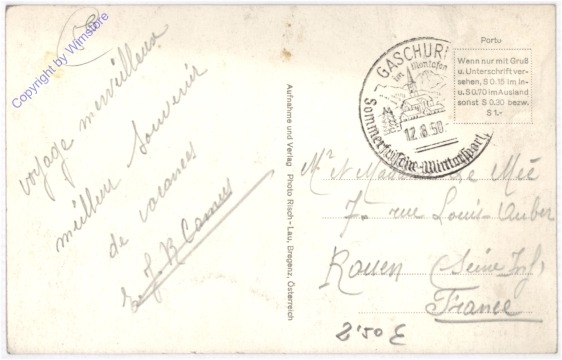 Copyright by Wimstore
voyage merveilleux
meilleur Souvenir
de vacances
Aufnahme und Verlag Photo Risch - Lau, Bregenz, Österreich
GASCHUR
im Montafon
12.8.50
Sommerfrische-Wintersport
Porto
Wenn nur mit Gruß
u. Unterschrift ver-
sehen, S 0.15 im In-
u. S 0.70 im Ausland
sonst S 0.30 bezw.
S 1.-
Mr et Madame Le Mée
7. rue Louis-Auber
Rouen (Seine Inf)
France
2'50 €